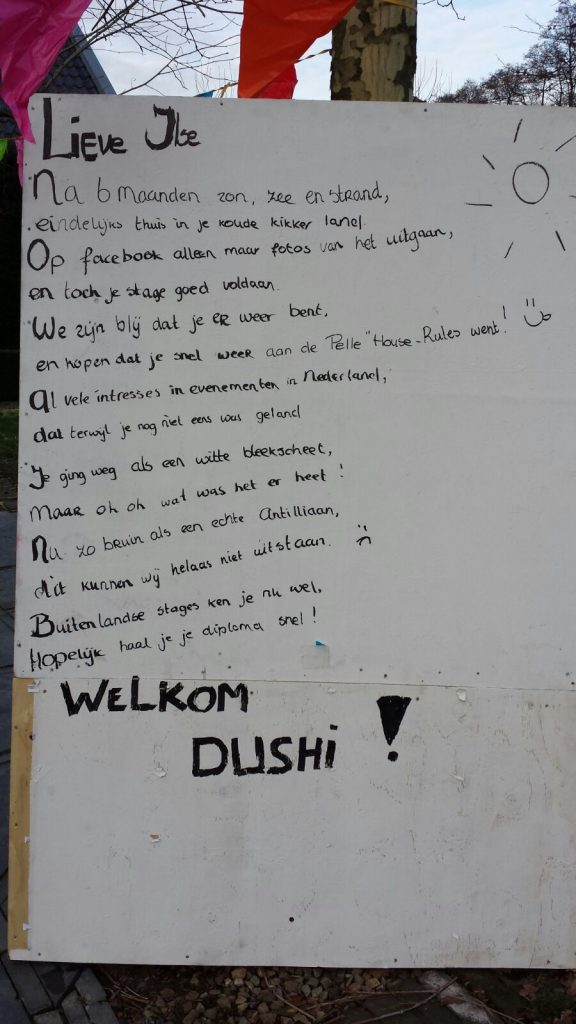 Lieve Ilse
Na 6 maanden zon, zee en strand,
eindelijks thuis in je koude kikker land.
Op facebook alleen maar fotos van het uitgaan,
en toch je stage goed voldaan.
We zijn blij dat je er weer bent,
en hopen dat je snel weer aan de Pelle "House-Rules went!
al vele intresses in evenementen in Nederland,
dat terwijl je nog niet eens was geland
Je ging weg als een witte bleekscheet,
Maar oh oh wat was het er heet!
Nu zo bruin als een echte Antilliaan,
dit kunnen wij helaas niet uitstaan.
Buitenlandse stages ken je nu wel,
Hopelijk haal je je diploma snel!
WELKOM
DUSHI!